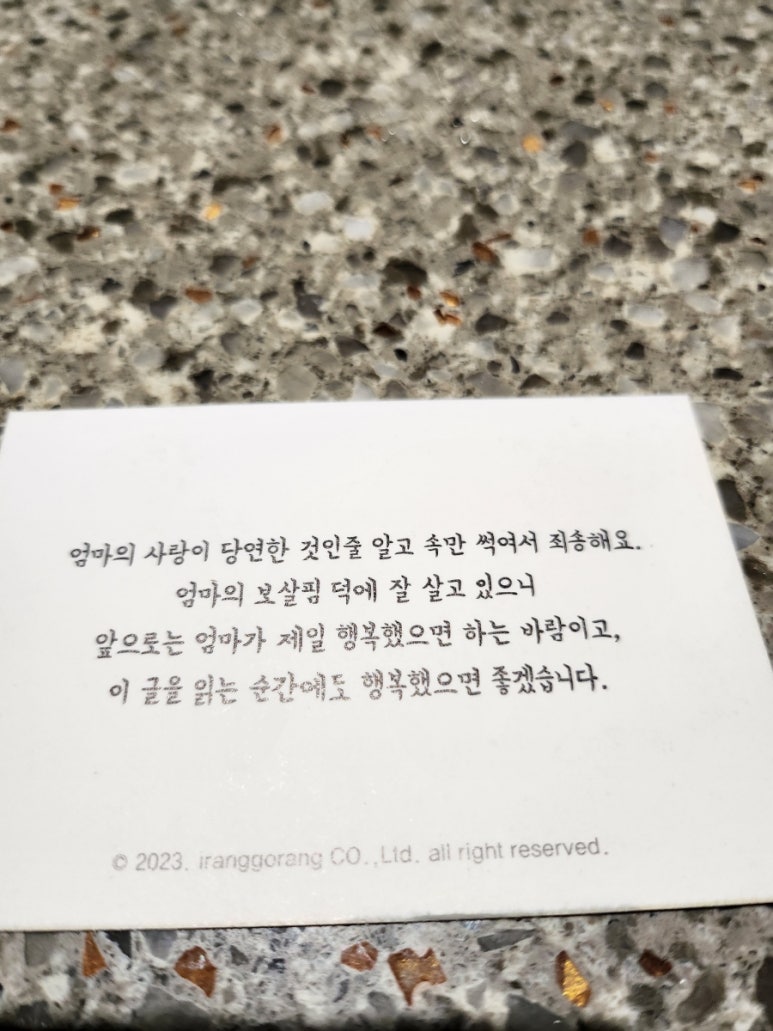 엄마의 사랑이 당연한 것인줄 알고 속만 썩여서 죄송해요.
엄마의 보살핌 덕에 잘 살고 있으니
앞으로는 엄마가 제일 행복했으면 하는 바람이고,
이 글을 읽는 순간에도 행복했으면 좋겠습니다.
© 2023. iranggorang CO.,Ltd. all right reserved.